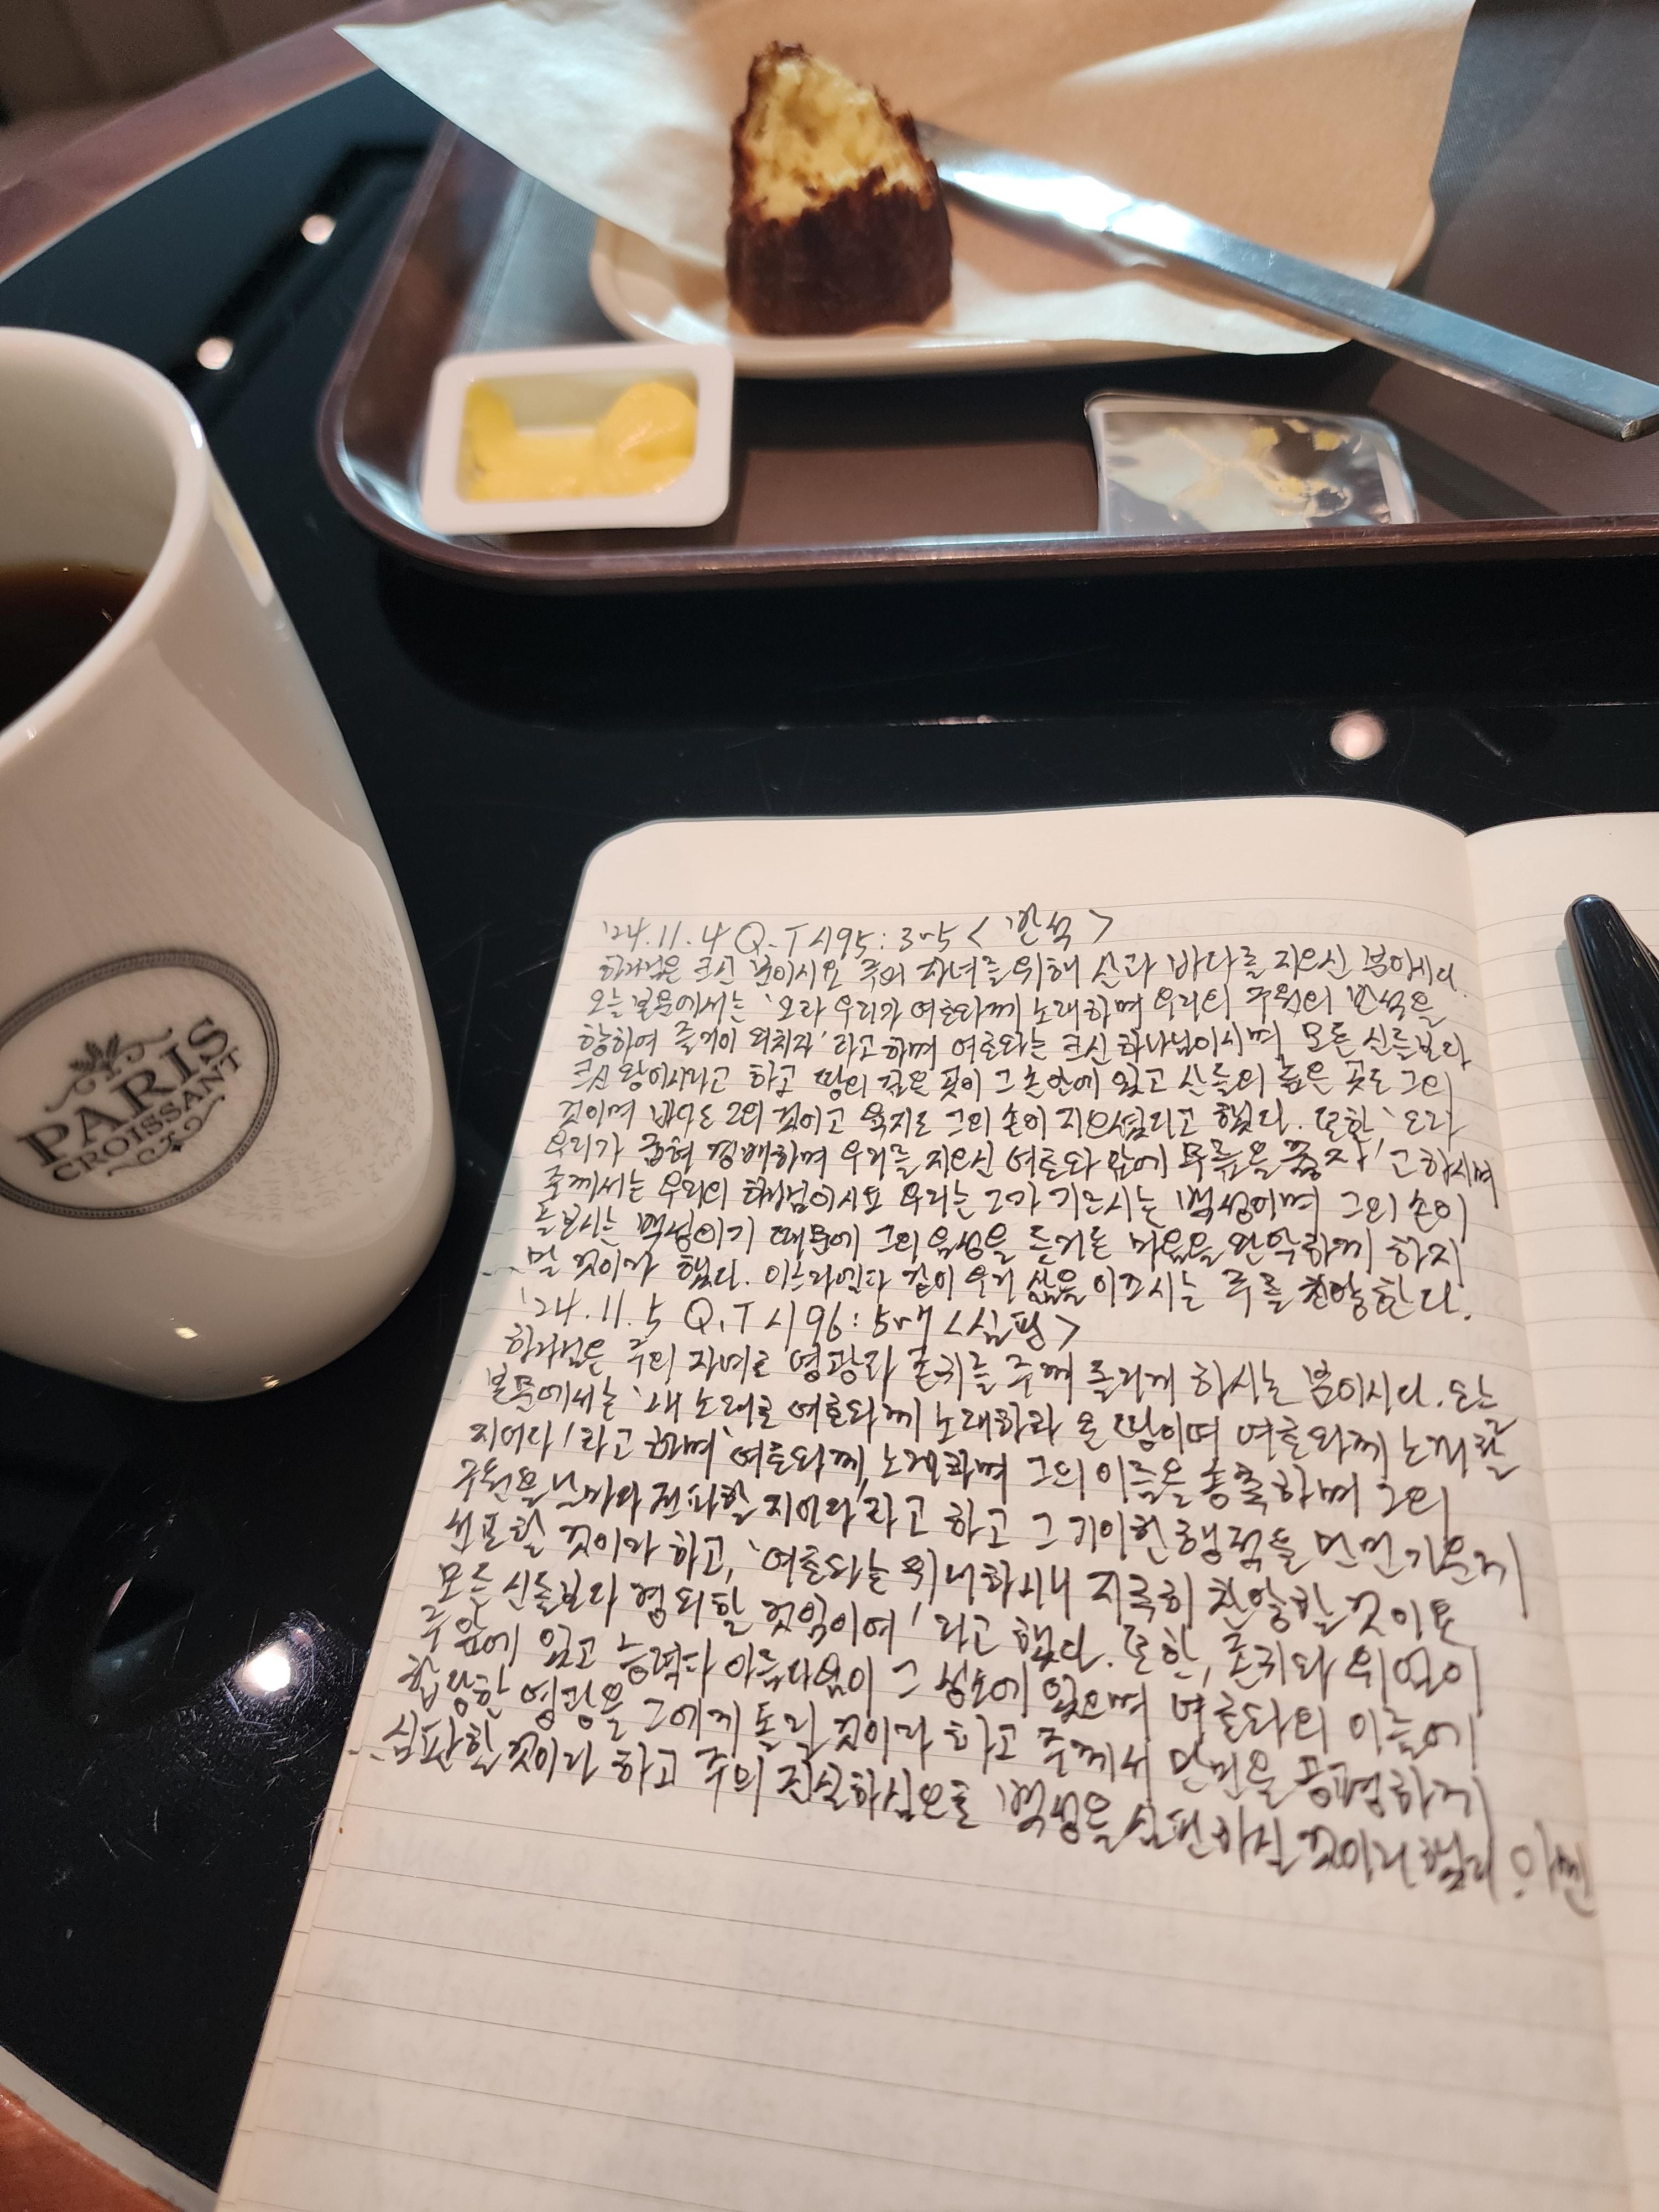 PARIS
CROISSANT
'24.11.4 Q.T 시95:3~5 <반석>
하나님은 크신 분이시요 주의 자녀를 위해 산과 바다를 지으신 분이시다.
오늘 본문에서는 '오라 우리가 여호와께 노래하며 우리의 구원의 반석을
향하여 즐거이 외치자' 라고 하며 여호와는 크신 하나님이시며 모든 신들보다
크신 왕이시라고 하고 땅의 깊은 곳이 그 손안에 있고 산들의 높은 곳도 그의
것이며 바다도 그의 것이고 육지도 그의 손이 지으셨다고 했다. 또한, '오라
우리가 굽혀 경배하며 우리를 지으신 여호와 앞에 무릎을 꿇자' 고 하시며
주께서는 우리의 하나님이시요 우리는 그가 기르시는 백성이며 그의 손이
돌보시는 백성이기 때문에 그의 음성을 듣거든 마음을 완악하게 하지
말 것이라 했다. 이스라엘과 같이 우리 삶을 이끄시는 주를 찬양한다.
'24.11.5 Q.T 시96:5~7 <심판>
하나님은 주의 자녀로 영광과 존귀를 주께 돌리게 하시는 분이시다. 오늘
본문에서는 '새 노래로 여호와께 노래하라 온 땅이여 여호와께 노래할
지어다' 라고 하며 '여호와께 노래하며 그의 이름을 송축하며 그의
구원을 날마다 전파할 지어다' 라고 하고 그 기이한 행적을 만민 가운데
선포할 것이라 하고, '여호와는 위대하시니 지극히 찬양할 것이요
모든 신들보다 경외할 것임이여' 라고 했다. 또한, 존귀와 위엄이
주 앞에 있고 능력과 아름다움이 그 성소에 있으며 여호와의 이름에
합당한 영광을 그에게 돌릴 것이라 하고 주께서 만민을 공평하게
심판할 것이라 하고 주의 진실하심으로 백성을 심판하실 것이라 했다. 아멘